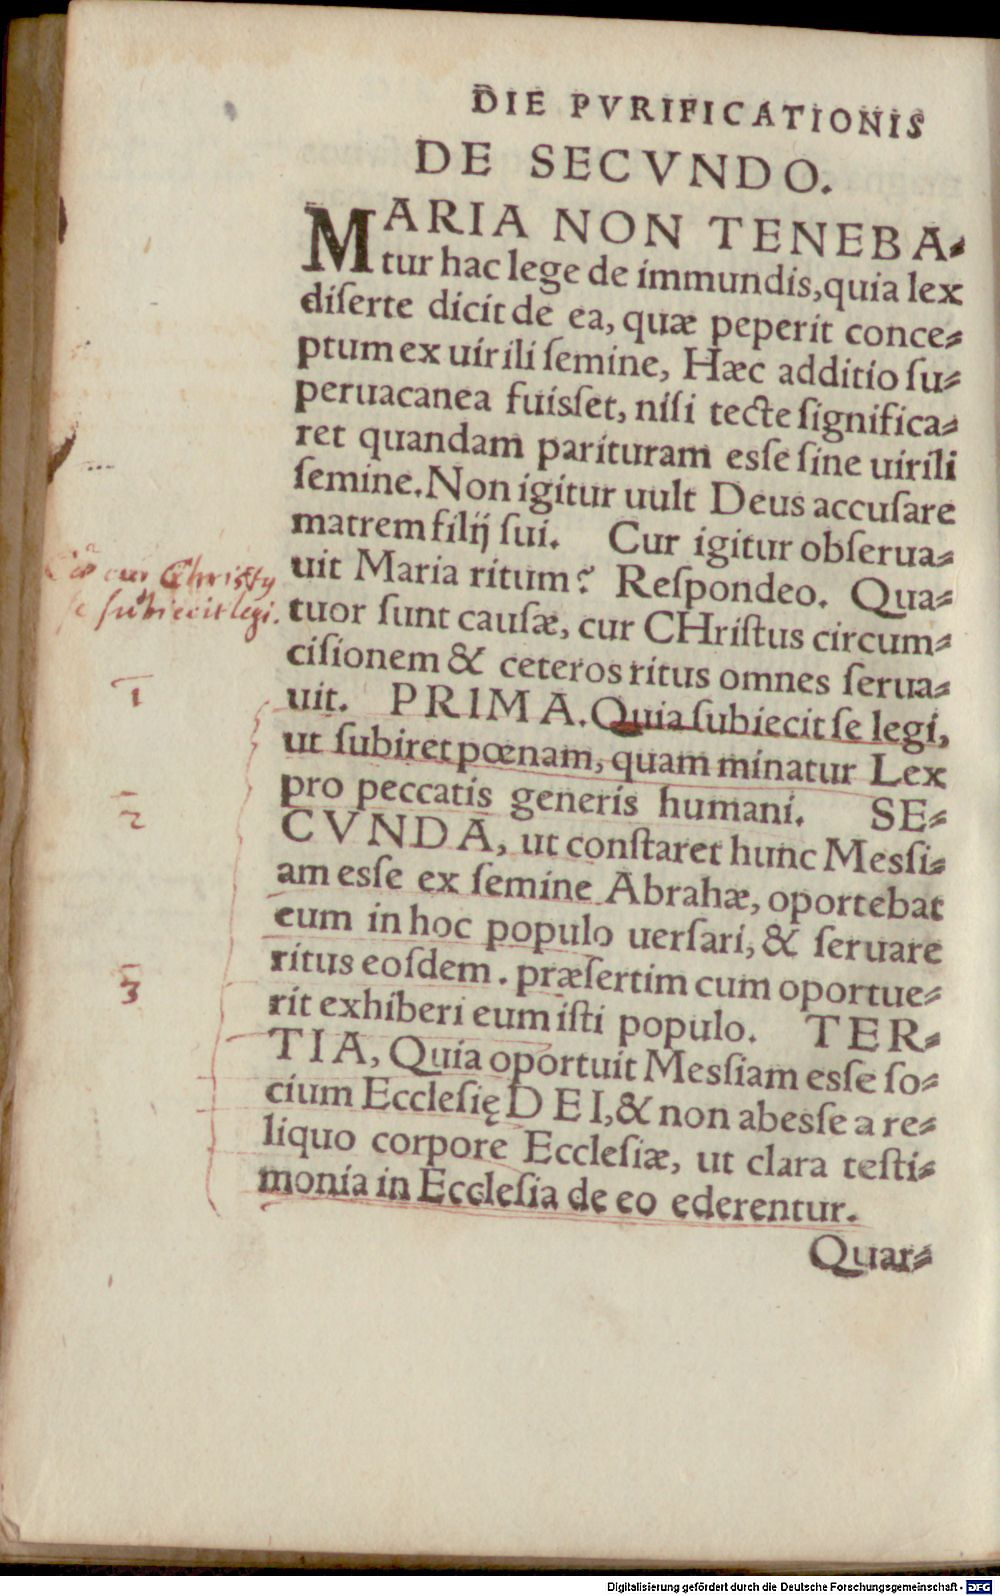 DIE PVRIFICATIONIS
DE SECVNDO.
MARIA NON TENEBA⸗
tur hac lege de immundis, quia lex
diſerte dicit de ea, quæ peperit conce⸗
ptum ex uirili ſemine, Hæc additio ſu⸗
peruacanea fuisſet, niſi tecte ſignifica⸗
ret quandam parituram esſe ſine uirili
ſemine. Non igitur uult Deus accuſare
matrem filij ſui. Cur igitur obſerua⸗
uit Maria ritum? Reſpondeo. Qua⸗
tuor ſunt cauſæ, cur CHriſtus circum⸗
ciſionem & ceteros ritus omnes ſerua⸗
uit. PRIMA. Quia ſubiecit ſe legi,
ut ſubiret pœnam, quam minatur Lex
pro peccatis generis humani. SE⸗
CVNDA, ut conſtaret hunc Mesſi⸗
am esſe ex ſemine Abrahæ, oportebat
eum in hoc populo uerſari, & ſeruare
ritus eoſdem. præſertim cum oportue⸗
rit exhiberi eum iſti populo. TER⸗
TIA, Quia oportuit Mesſiam esſe ſo⸗
cium Eccleſię DEI, & non abesſe a re⸗
liquo corpore Eccleſiæ, ut clara teſti⸗
monia in Eccleſia de eo ederentur.
Quar⸗
cur Christus
ſe ſubiecit legi.
1
2
3
Digitalisierung gefördert durch die Deutsche Forschungsgemeinschaft - DFG